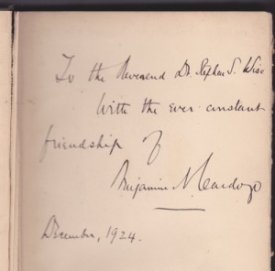 To the Reverend Dr. Stephen S. Wise
With the ever constant
friendship of
Benjamin N. Cardozo
December, 1924.